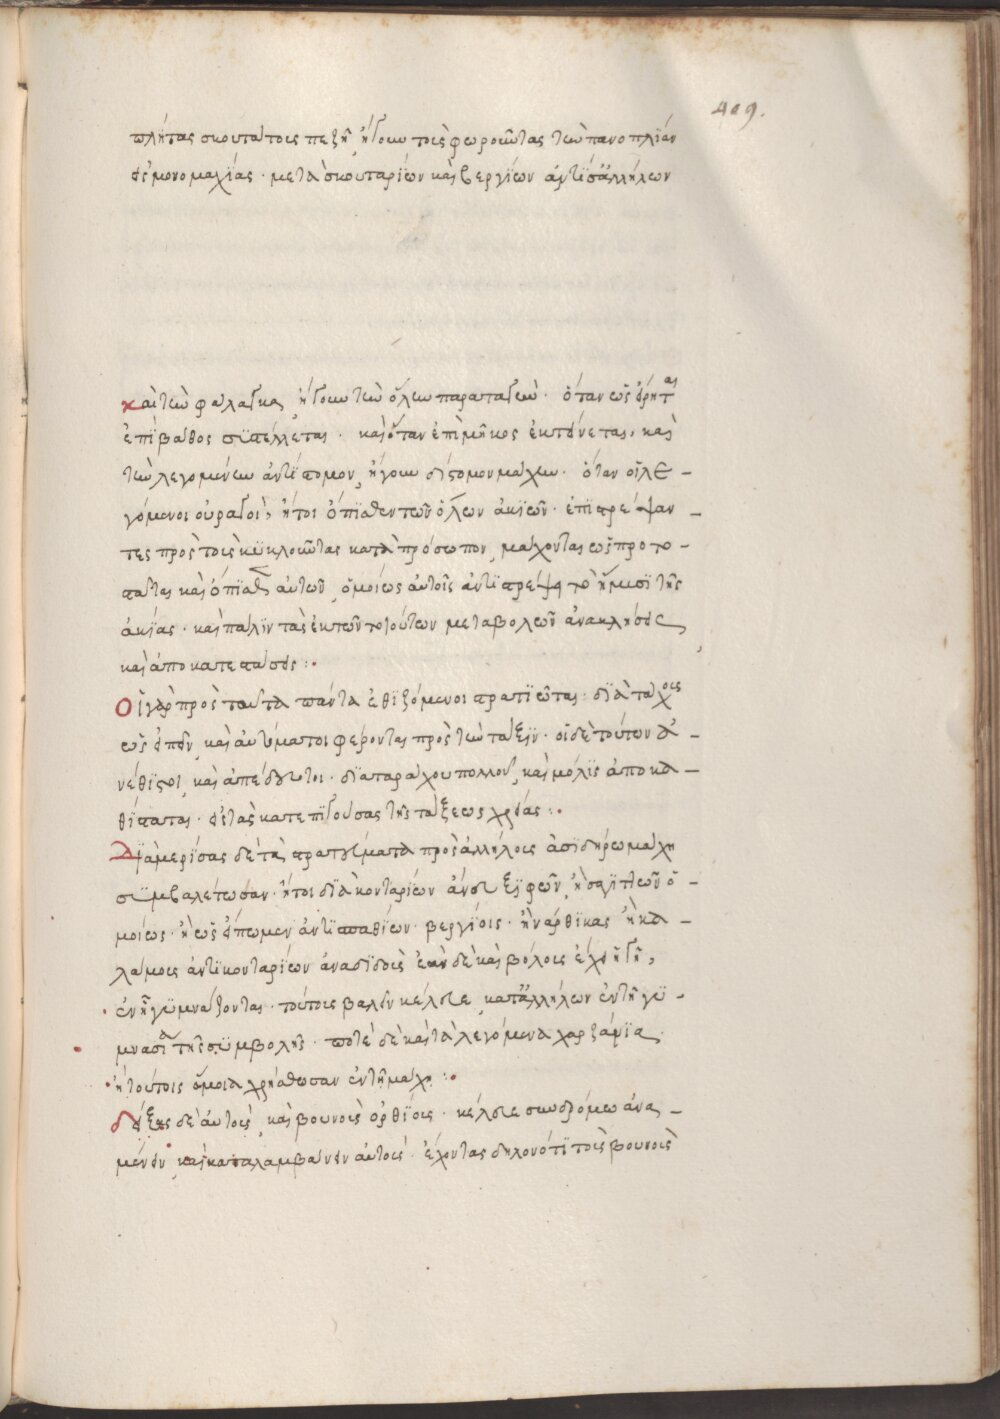 409.
πλήτας σκουτάτους πεζῆ, ἤγουν τοὺς φοροῦντας τὴν πανοπλίαν
εἰς μονομαχίας · μετὰ σκουταρίων καὶ βεργίων ἀντὶς ἀλλήλων
καὶ τὴν φάλαγγα, ἤγουν τὴν ὅλην παραταγὴν · ὅταν ὡς εἴρηται
ἐπὶ βάθος συστέλλεται · καὶ ὅταν ἐπὶ μῆκος ἐκτείνεται, καὶ
τὴν λεγομένην ἀντίστομον, ἤγουν δίστομον μάχην · ὅταν οἱ λε-
γόμενοι οὐραγοὶ, ἤτοι ὄπισθεν τῶν ὅλων ἀκιῶν · ἐπιστρέψαν-
τες πρὸς τοὺς κυκλοῦντας κατὰ πρόσωπον, μάχονται ὡς προτο-
στάται καὶ ὄπισθεν αὐτῶν, ὁμοίως αὐτοῖς ἀντιστρέψει τὸ ἥμισι τῆς
ἀκίας · καὶ πάλιν τὰς ἐκ τῶν τοιούτων μεταβολῶν ἀνακλήσεις,
καὶ ἀποκαταστάσεις :·
Οἱ γὰρ πρὸς ταῦτα πάντα ἐθιζόμενοι στρατιῶται · διὰ τάχους
ὡς εἰπεῖν, καὶ αὐτόματοι φέρονται πρὸς τὴν τάξιν · οἱ δὲ τούτων ἀ-
νέθιστοι, καὶ ἀπαίδευτοι · διὰ ταράχου πολλοῦ, καὶ μόλις ἀποκα-
θίστανται · εἰς τὰς κατεπιγούσας τῆς τάξεως χρείας :·
Διαμερίσας δὲ τὰ στρατεύματα πρὸς ἀλλήλους ἀσιδήρω μάχη
συμβαλέτωσαν · ἤτοι διὰ κονταρίων ἄνευ ξιφῶν, ἢ σαγιττῶν ὁ-
μοίως · ἢ ὡς εἴπωμεν ἀντὶ σπαθίων · βεργίοις · ἢ νάρθικας ἢ κα-
λάμοις ἀντὶ κονταρίων ἄνασίδοις ἐὰν δὲ καὶ βόλους ἔχει ἡ γῆ,
ἐν ἧ γυμνάζονται · τούτους βαλεῖν κέλευε, κατ' ἀλλήλων ἐν τῆ γυ-
μνασία τῆς συμβολῆς · ποτὲ δὲ καὶ τὰ λεγόμενα χαρζάνια
ἢ τούτοις ὅμοια χρήσθωσαν ἐν τῆ μάχη :·
Δείξας δὲ αὐτοῖς, καὶ βουνοὺς ὀρθίους · κέλευε συνδρόμω ἀνα-
μένειν, καὶ καταλαμβάνειν αὐτούς · ἔχοντας δηλονότι τοὺς βουνοὺς